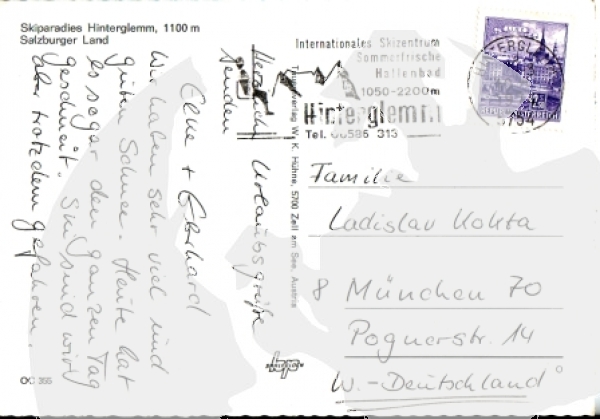 Skiparadies Hinterglemm, 1100 m
Salzburger Land
Herzliche Urlaubsgrüße
senden
Elke + Eberhard
Wir haben sehr viel und
guten Schnee. Heute hat
es sogar den ganzen Tag
geschneit. Ski sind wir
aber trotzdem gefahren.
OC 355
W. K. Hühne, 5700 Zell am See, Austria
Internationales Skizentrum
Sommerfrische
Hallenbad
1050-2200m
Hinterglemm
Tel. 06586 313
HINTERGLEMM
5754
Familie
Ladislav Kokta
8 München 70
Pognerstr. 14
W.-Deutschland